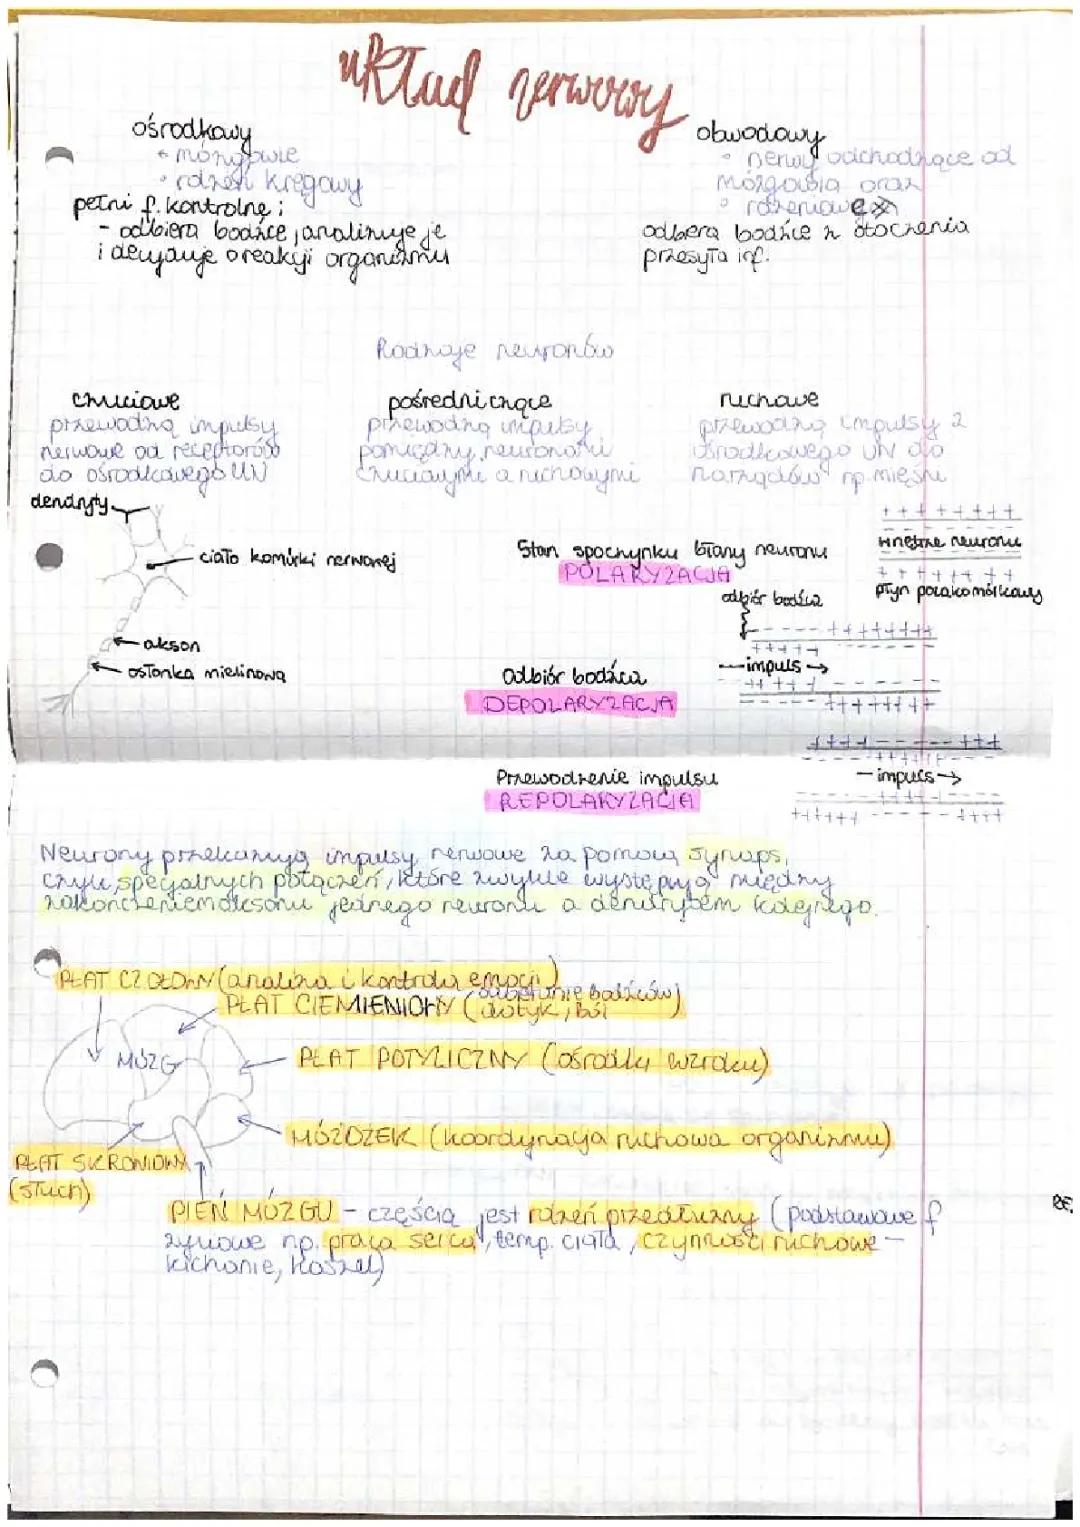 układ nerwowy
ośrodkowy
• mózgowie
• rdzeń kręgowy
pełni f. kontrolne:
- odbiera bodźce, analizuje je
i decyduje o reakcji organizmu
obwodowy
• nerwy odchodzące od
mózgowia oraz
• rdzeniowe
odbiera bodźce z otoczenia
przesyła inf.
Rodzaje neuronów
czuciowe
przewodzą impulsy
nerwowe od receptorów
do ośrodkowego UN
pośredniczące
przewodzą impulsy
pomiędzy neuronami
czuciowymi a ruchowymi
ruchowe
przewodzą impulsy z
ośrodkowego UN do
narządów np. mięśni
dendryty
ciało komórki nerwowej
akson
osłonka mielinowa
Stan spoczynku błany neuronu
POLARYZACJA
+ + + + + + + +
wnętrze neuronu
+ + + + + + + +
płyn pozakomórkowy
odbiór bodźca
Odbiór bodźca
DEPOLARYZACJA
impuls →
Przewodzenie impulsu
REPOLARYZACJA
impuls →
Neurony przekazują impulsy nerwowe za pomocą synaps,
czyli specjalnych połączeń, które zwykle występują między
zakończeniem aksonu jednego neuronu a dendrytem kolejnego.
PŁAT CZOŁOWY (analiza i kontrola emocji)
PŁAT CIEMIENIOWY (odbieranie bodźców)
dotyk, ból
MÓZG
PŁAT POTYLICZNY (ośrodki wzroku)
MÓŻDŻEK (koordynacja ruchowa organizmu)
PŁAT SKRONIOWY
(słuch)
PIEŃ MÓZGU - częścią jest rdzeń przedłużny (podstawowe f
życiowe np. praca serca, temp. ciała, czynności ruchowe -
kichanie, kaszel)